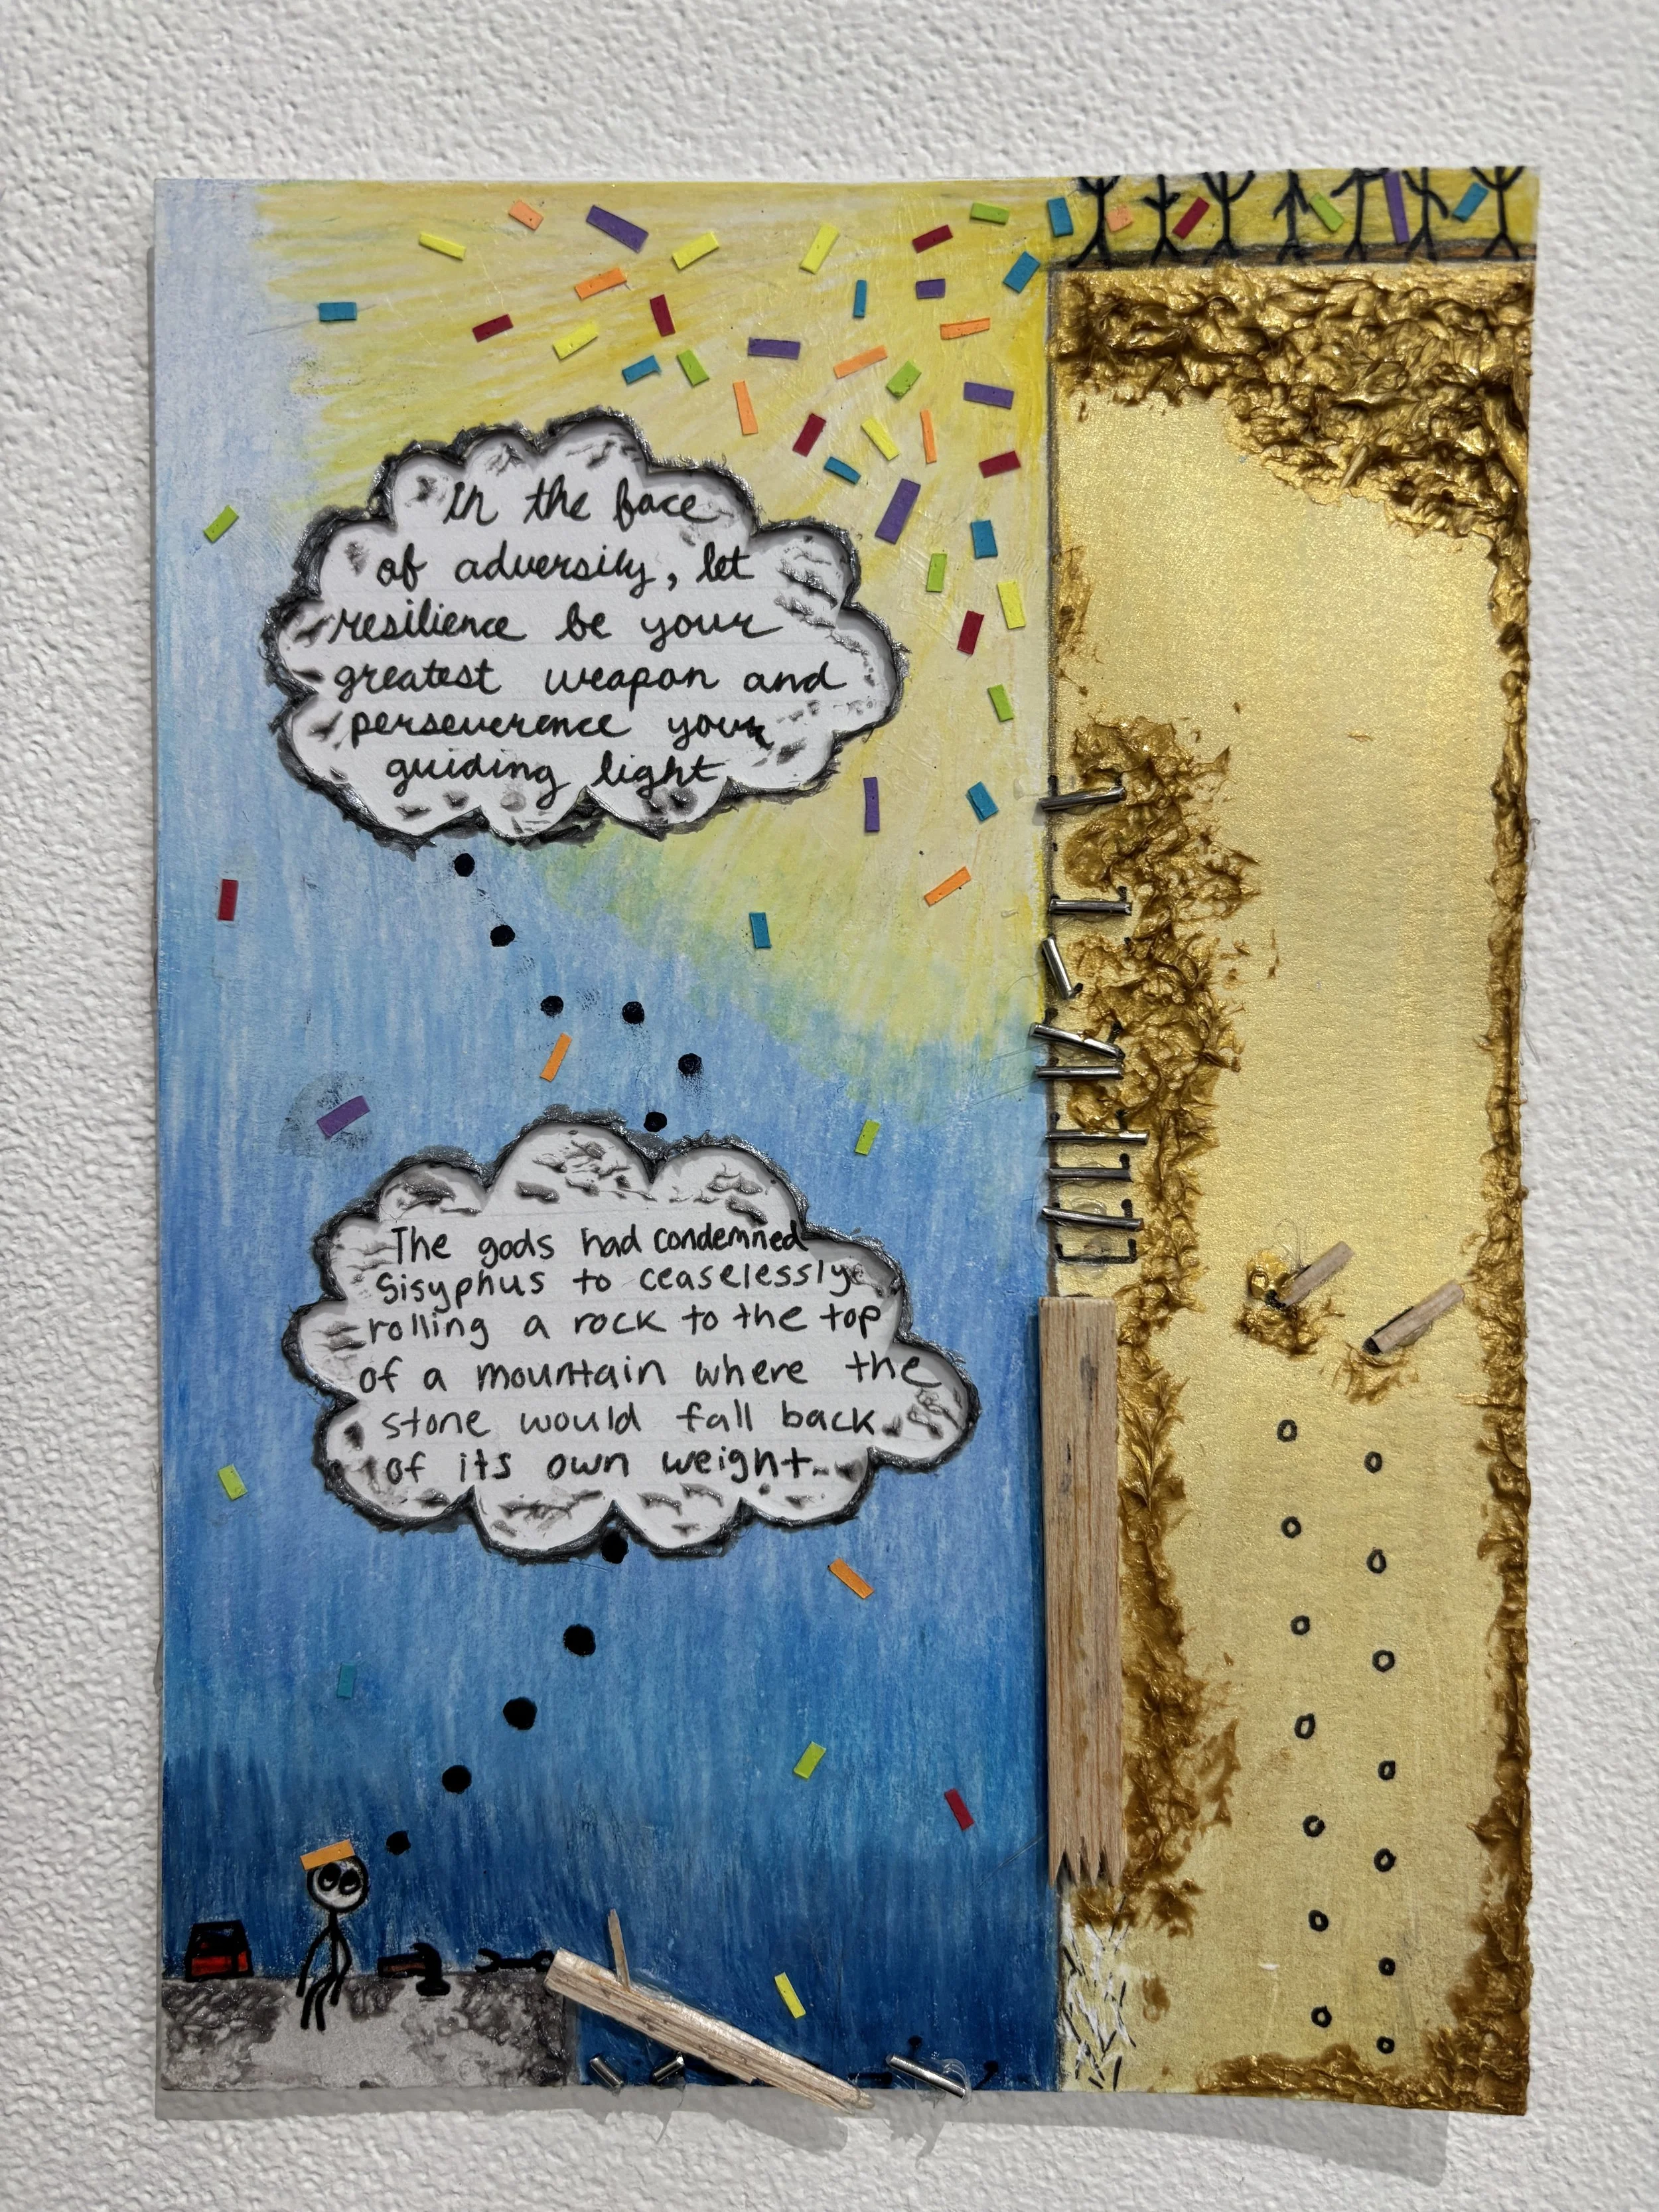 In the face
of adversity, let
resilience be your
greatest weapon and
perseverence your
guiding light
The gods had condemned
Sisyphus to ceaselessly
rolling a rock to the top
of a mountain where the
stone would fall back
of its own weight...